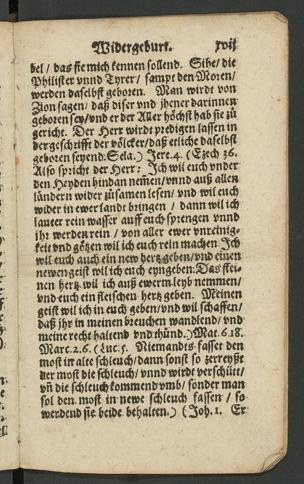 Widergeburt. xvij
bel / das sie mich kennen sollend. Sihe / die
Philister vnnd Tyrer / sampt den Moren /
werden daselbst geboren. Man wirdt von
Zion sagen / daß diser vnd jhener darinnen
geboren sey / vnd er der Aller höchst hab sie zů
gericht. Der Herr wirdt predigen lassen in
der geschrifft der völcker / daß etliche daselbst
geboren seyend: Sela.) Jere. 4. (Ezech 36.
Also spricht der Herr: Jch wil euch vnder
den Heyden hindan nemen / vnnd auß allen
ländern wider zůsamen lesen / vnd wil euch
wider in ewer landt bringen / dann wil ich
lauter rein wasser auff euch sprengen vnnd
jhr werden rein / von aller ewer vnreinig-
keit vnd götzen wil ich euch rein machen. Jch
wil euch auch ein new hertz geben / vnd einen
newen geist wil ich euch eyngeben: Das stei-
nen hertz wil ich auß ewerm leyb nemmen /
vnd euch ein fleischen hertz geben. Meinen
geist wil ich in euch geben / vnd wil schaffen /
daß jhr in meinen breuchen wandlend / vnd
meine recht haltend vnd thünd.) Mat. 6. 18.
Marc. 2. 6. (Luc. 5. Niemandts fasset den
most in alte schleuch / dann sonst so zerreyßt
der most die schleuch / vnnd wirdt verschüt /
vñ die schleuch kommend vmb / sonder man
sol den most in newe schleuch fassen / so
werdend sie beide behalten.) (Joh. 1. Er